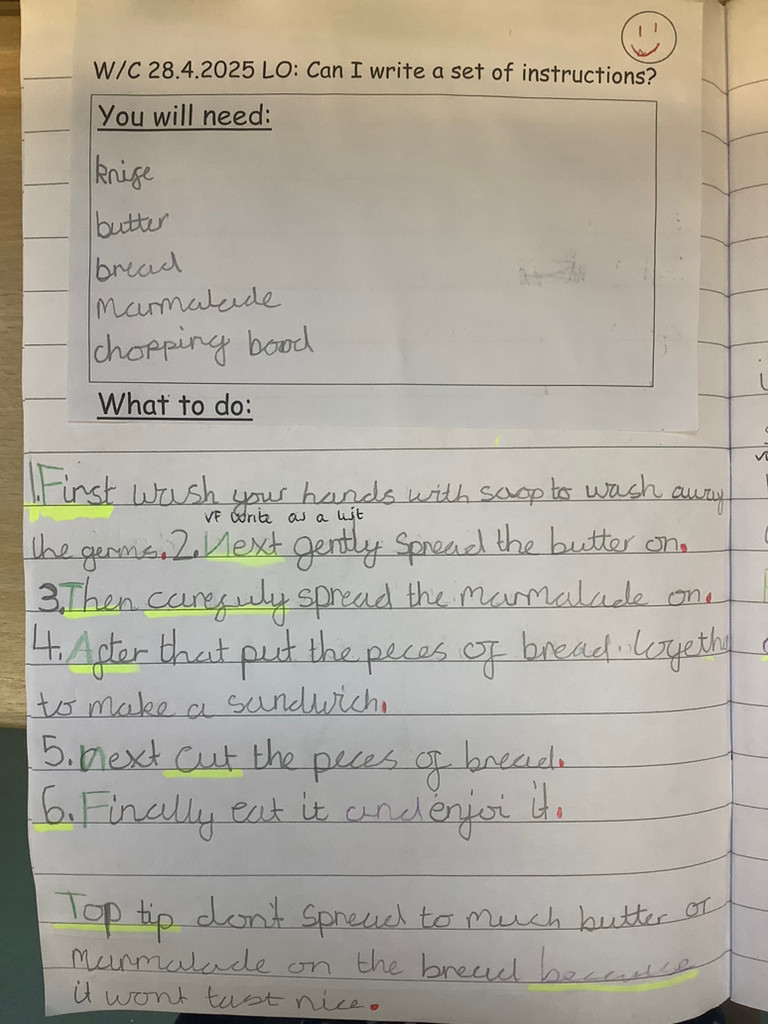 W/C 28.4.2025 LO: Can I write a set of instructions?
You will need:
knife
butter
bread
marmalade
chopping bood
What to do:
1.First wash your hands with saop to wash away
VF write as a list
the germs. 2. Next gently spread the butter on.
3.Then carefuly spread the marmalade on.
4. After that put the peces of bread. togeth
to make a sandwich.
5. next cut the peces of bread.
6. Finally eat it and enjoi it.
Top tip don't spread to much butter or
marmalade on the bread because
it wont tast nice.